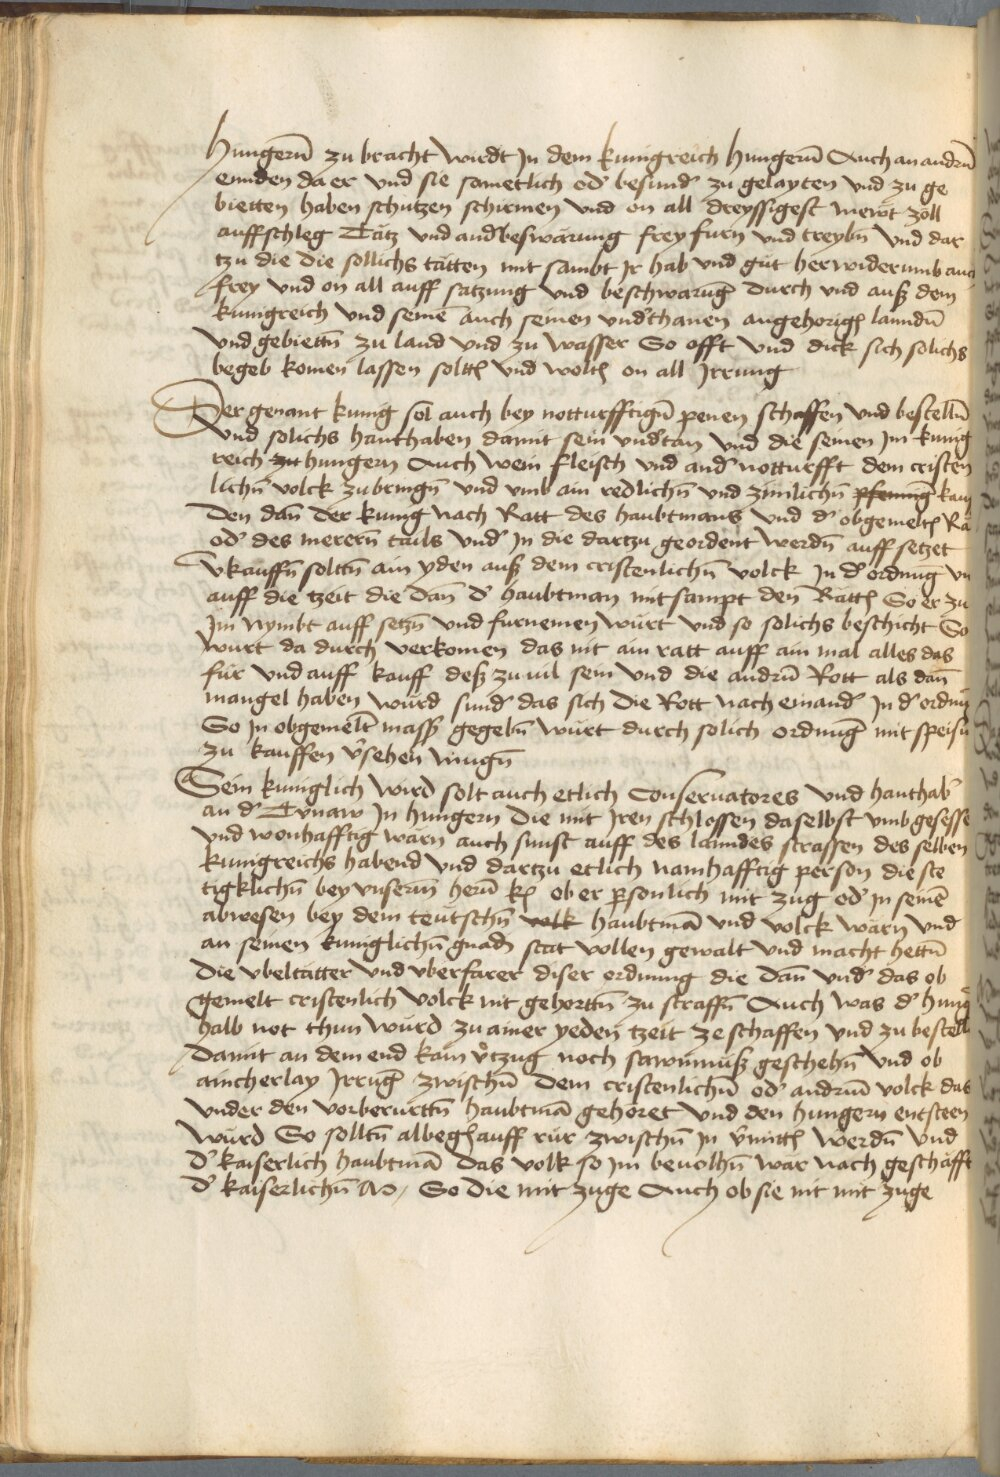 Hungern̄ zu bracht wirdt In dem kunigreich hungern̄ Auch an andrn̄
ennden da er vnd sie sametlich od' besund' zu gelayten vnd zu ge
bietten haben schutzen schirmen vnd on all dreyssigest mewt zoll
auffschleg Tatz vnd and' beswarung frey furn vnd treybn̄ vnd dar
tzu die die sollichs tätten mit sambt Ir hab vnd gut herwiderumb auch
frey vnd on all auff satzung vnd beschwarūg durch vnd auß dem
kunigreich vnd seinē auch seinen vnd'thanen angehorigen lanndn̄
vnd gebiettn̄ zu land vnd zu wasser So offt vnd dick sich solichs
begeb komen lassen soltten vnd wolten on all Irrung
Der genant kunig sol auch bey notturfftign̄ penen schaffen vnd bestelln̄
vnd solichs hanthaben damit sein vnd'tan vnd die seinen Im kunig
reich zu hungern Auch wein fleisch vnd and' notturfft dem cristen
lichn̄ volck zubringn̄ vnd vmb ain redlichn̄ vnd zimlichn̄ pfenning kauff
den dan̄ der kunig nach Ratt des haubtmans vnd d' obgemelten Rä
od' des merern̄ tails vnd' In die dartzu geordent werdn̄ auff setzet
v'kauffn̄ solttn̄ ain yden auß dem cristenlichn̄ volck In d' ordnūg vn
auff die tzeit die dan̄ d' haubtman mitsampt den Ratten So er zu
Im nymbt auff setzn̄ vnd furnemen wurt vnd so solichs beschicht So
wurt da durch verkomen das nit ain ratt auff ain mal alles das
für vnd auff kauff deß zuuil sein vnd die andrn̄ Rott als dan̄
mangel haben wurd sund' das sich die Rott nach einand' In d' ordnūg
So In obgemelt' mass gegebn̄ wurt durch solich ordnūg mit speisn̄
zu kauffen v'sehen mugn̄
Sein kuniglich wird solt auch etlich Conseruatores vnd hanthab'
an d' Tunaw In hungern die mit Iren schlossen daselbst vmbgesesse
vnd wonhafftig wärn auch sunst auff des lanndes strassen des selben
kunigreichs habend vnd dartzu etlich namhafftig person die ste
tigklichn̄ bey vnserm̄ hern̄ K ob er p̱sonlich mit zug od' In seinē
abwesen bey dem teutschn̄ volk haubtmā vnd volck wärn vnd
an seinen kuniglichn̄ gnadn̄ stat vollen gewalt vnd macht hettn̄
die vbeltätter vnd vberfarer diser ordnung die dan̄ vnd' das ob
gemelt cristenlich volck nit gehorttn̄ zu straffn̄ Auch was d' hung'
halb not thun wurd zu ainer yeden tzeit ze schaffen vnd zu bestelln
damit an dem end kain v'tzug noch sawmnuß geschehn̄ vnd ob
aincherlay Irrūg zwischn̄ dem cristenlichn̄ od' andrn̄ volck das
vnder den vorberurttn̄ haubtmā gehoret vnd den hungern entsteen
wurd So solltn̄ albegen auff rür zwischn̄ In v'mitten werdn̄ vnd
d' kaiserlich haubtmā das volk so im beuolhn̄ wär nach geschäfft
d' kaiserlichn̄ So die mit zuge Auch ob sie nit mit zuge